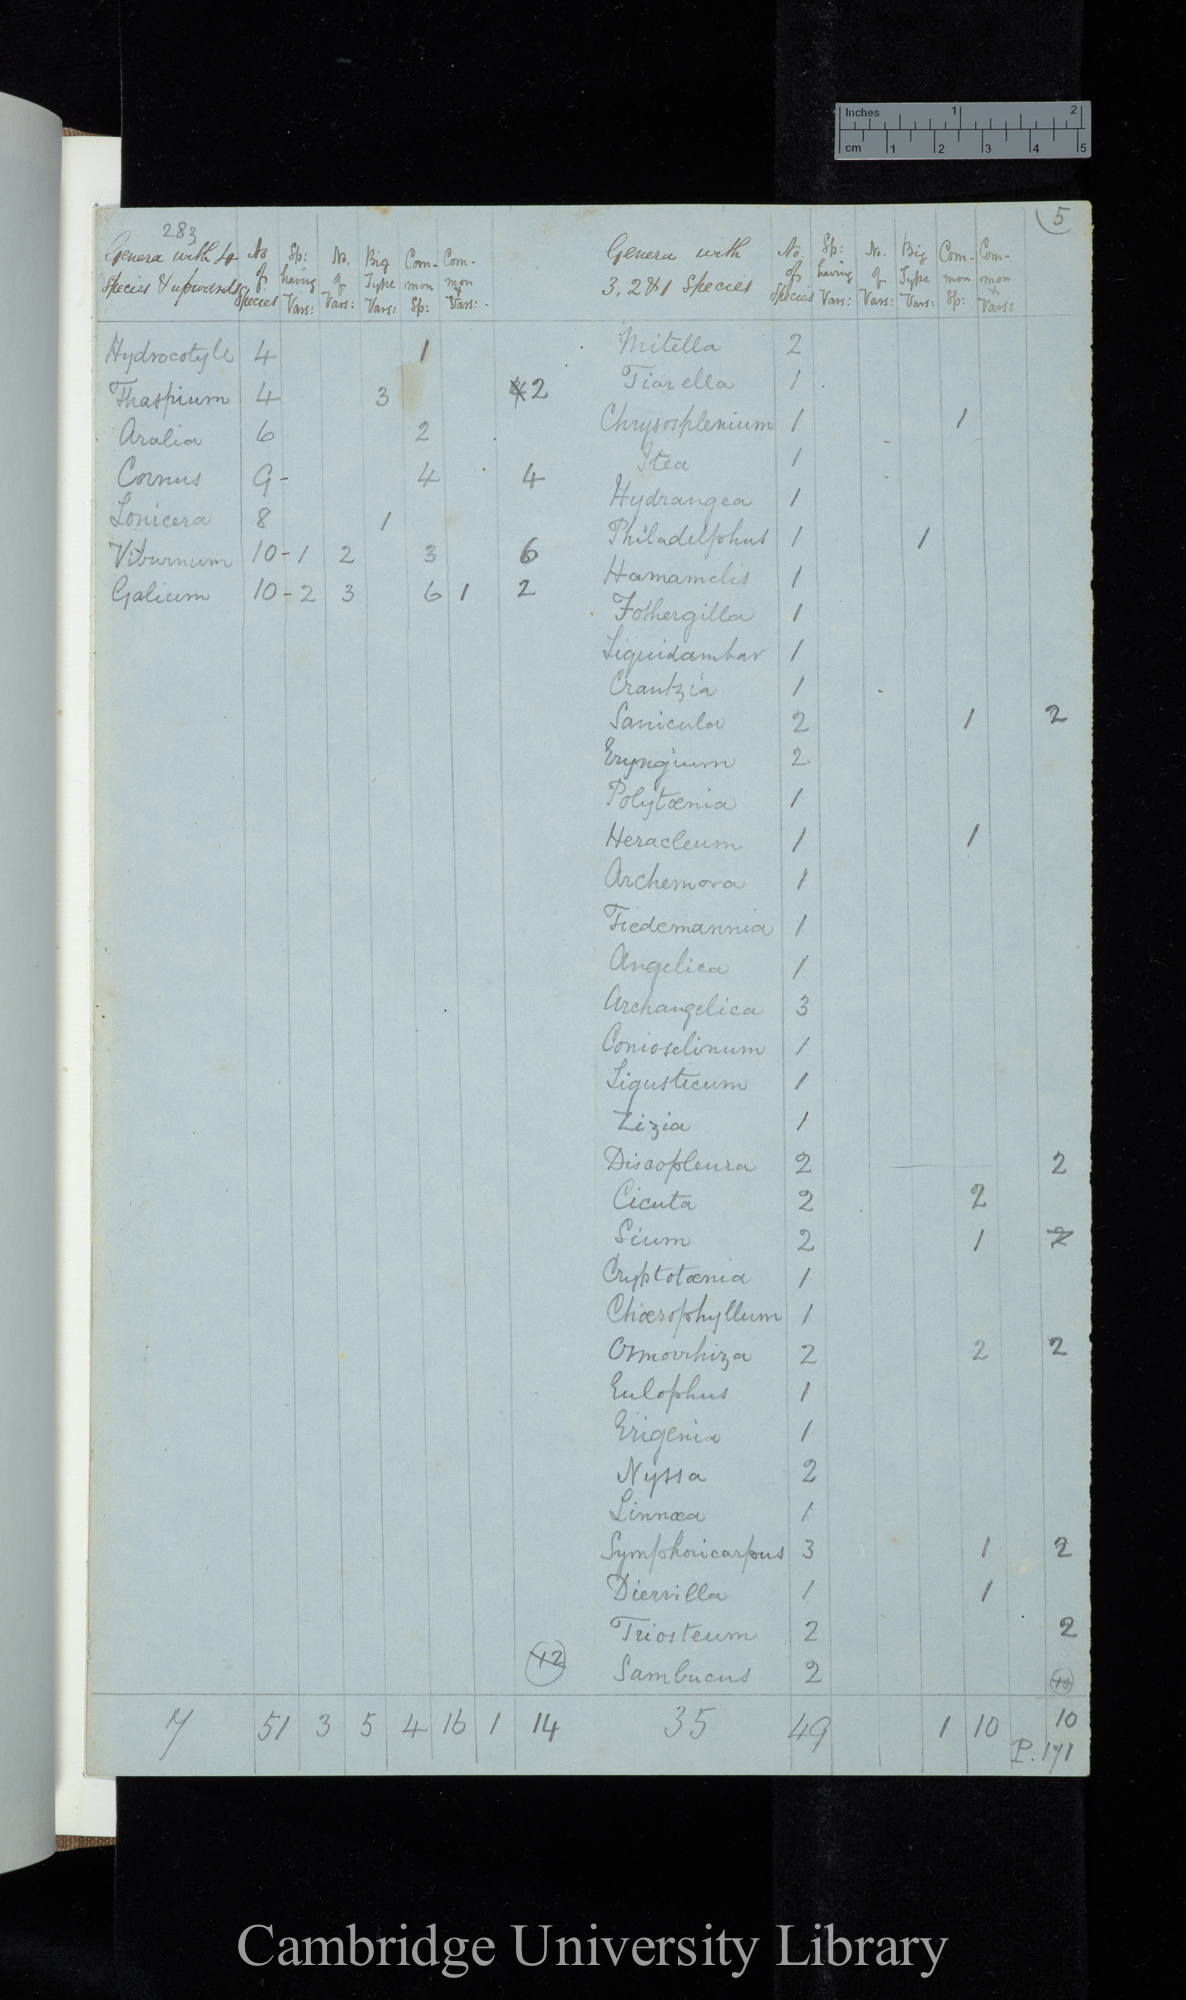 Inches 1 2
cm 1 2 3 4 5
283
5
Genera with 4 species & upwards | No of Species | Sp: having Vars: | No. of Vars: | Big Type Vars: | Common Sp: | Common & Vars:
Hydrocotyle 4 1
Thaspium 4 3 4 2
Aralia 6 2
Cornus 9- 4 4
Lonicera 8 1
Viburnum 10-1 2 3 6
Galium 10-2 3 6 1 2
12
7 51 3 5 4 16 1 14
Genera with 3, 2 & 1 Species | No. of Species | Sp: having Vars: | No. of Vars: | Big Type Vars: | Common Sp: | Common & Vars:
Mitella 2
Tiarella 1
Chrysosplenium 1 1
Itea 1
Hydrangea 1
Philadelphus 1 1
Hamamelis 1
Fothergilla 1
Liquidambar 1
Crantzia 1
Sanicula 2 1 2
Eryngium 2
Polytænia 1
Heracleum 1 1
Archemora 1
Tiedemannia 1
Angelica 1
Archangelica 3
Conioselinum 1
Ligusticum 1
Zizia 1
Discopleura 2 2
Cicuta 2 2
Sium 2 1 2
Cryptotænia 1
Chærophyllum 1
Osmorrhiza 2 2 2
Eulophus 1
Erigenia 1
Nyssa 2
Linnæa 1
Symphoricarpus 3 1 2
Diervilla 1 1
Triosteum 2 2
Sambucus 2
35 49 1 10 10
P. 171
Cambridge University Library